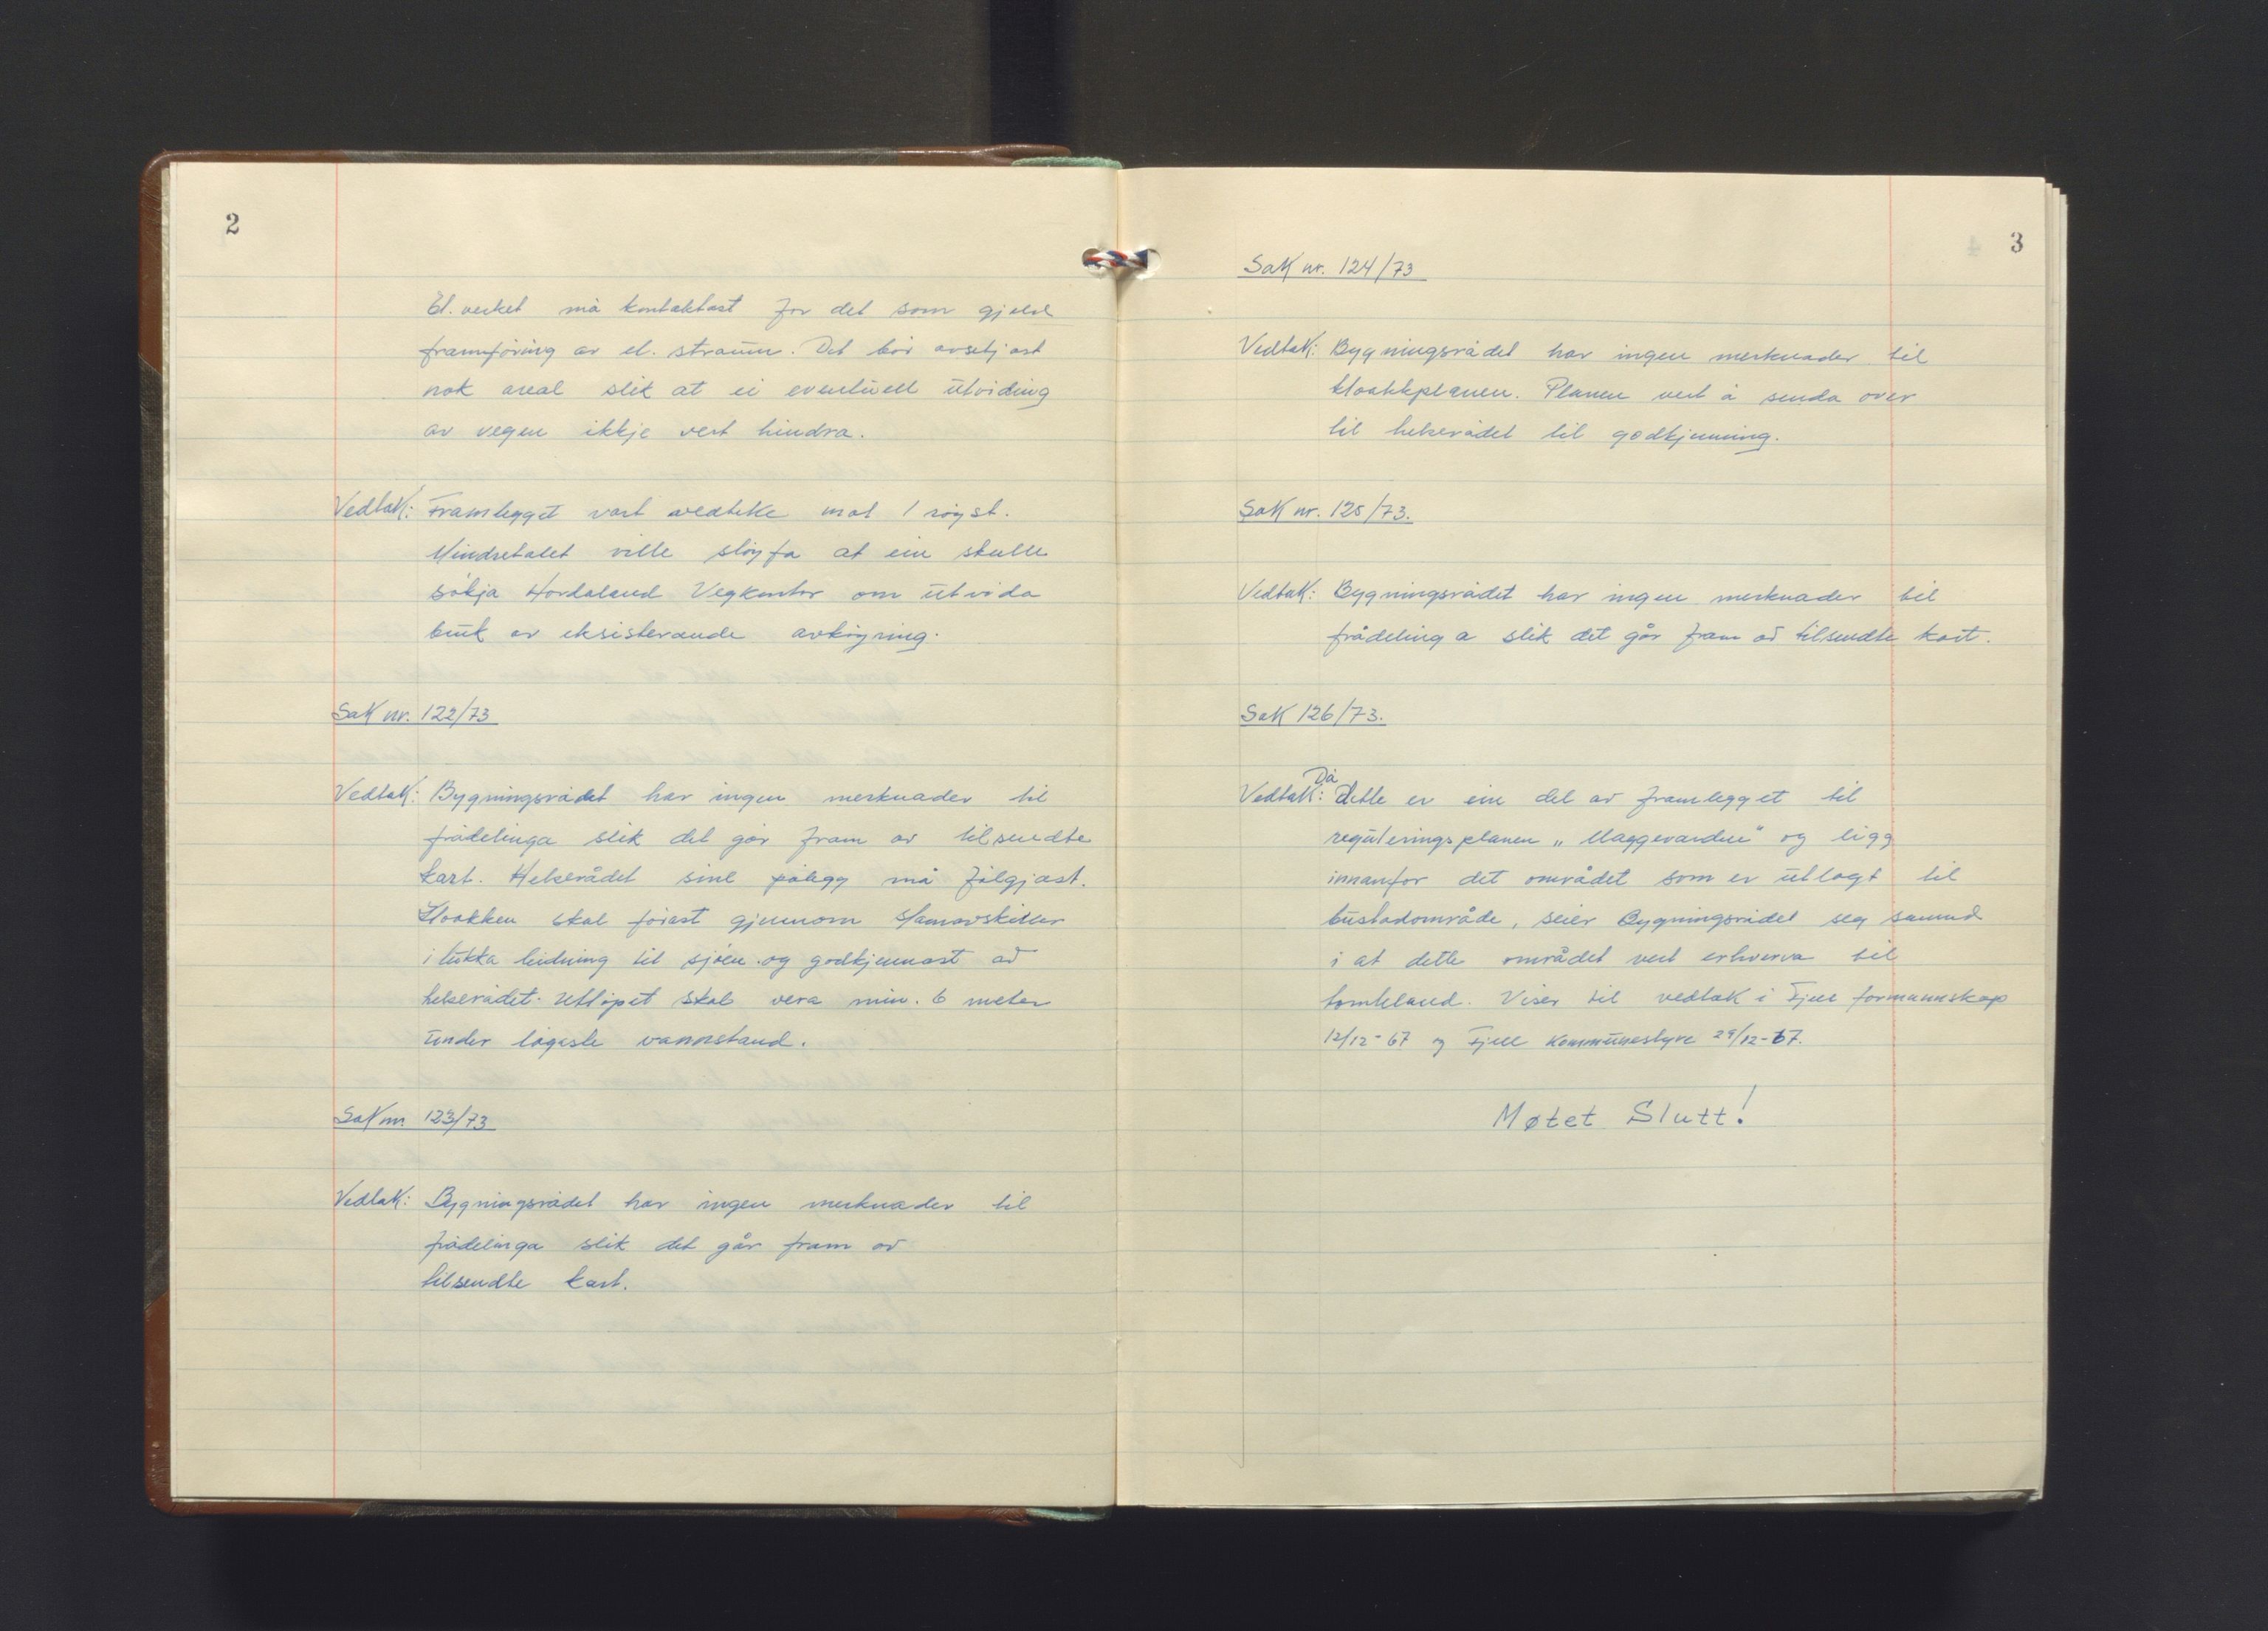 2
El. verket må kontaktast for det som gjeld
framføring av el. straum. Det bør avsetjast
nok areal slik at ei eventuell utviding
av vegen ikkje vert hindra.
Vedtak: Framlegget vart vedteke mot 1 røyst.
Mindretalet ville sløyfa at ein skulle
søkja Hordaland Vegkontor om utvida
bruk av eksisterande avkøyring.
Sak nr. 122/73
Vedtak: Bygningsrådet har ingen merknader til
frådelinga slik det går fram av tilsendte
kart. Helserådet sine pålegg må følgjast.
Kloakken skal førast gjennom slamavskiller
i lukka leidning til sjøen og godkjennast av
helserådet. Utløpet skal vera min. 6 meter
under lågaste vannstand.
Sak nr. 123/73
Vedtak: Bygningsrådet har ingen merknader til
frådelinga slik det går fram av
tilsendte kart.
3
Sak nr. 124/73
Vedtak: Bygningsrådet har ingen merknader til
kloakkplanen. Planen vert å senda over
til helserådet til godkjenning.
Sak nr. 125/73.
Vedtak: Bygningsrådet har ingen merknader til
frådelinga slik det går fram av tilsendte kart.
Sak 126/73.
Vedtak: Då dette er ein del av framlegget til
reguleringsplanen "Maggevarden" og ligg
innanfor det området som er utlagt til
bustadområde, seier Bygningsrådet seg samd
i at dette området vert erhverva til
tomteland. Viser til vedtak i Fjell formannskap
12/12-67 og Fjell Kommunestyre 29/12-67.
Møtet Slutt!